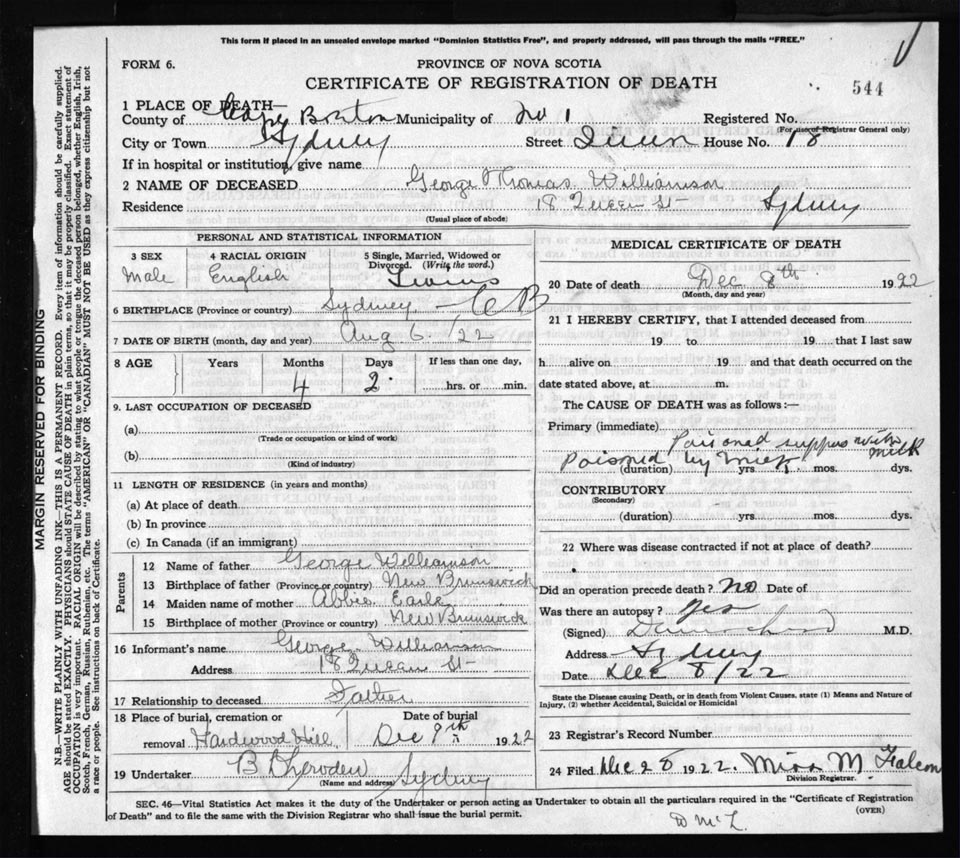 This form if placed in an unsealed envelope marked "Dominion Statistics Free", and properly addressed, will pass through the mails "FREE."
FORM 6.
PROVINCE OF NOVA SCOTIA
CERTIFICATE OF REGISTRATION OF DEATH
544
1 PLACE OF DEATH—
County of Cape Breton Municipality of No 1 Registered No.
(For use of Registrar General only)
City or Town Sydney Street Queen House No. 18
If in hospital or institution, give name
2 NAME OF DECEASED George Thomas Williamson
Residence 18 Queen St Sydney
(Usual place of abode)
PERSONAL AND STATISTICAL INFORMATION
3 SEX 4 RACIAL ORIGIN 5 Single, Married, Widowed or Divorced. (Write the word.)
Male English
6 BIRTHPLACE (Province or country) Sydney — C B
7 DATE OF BIRTH (month, day and year) Aug 6. /22
8 AGE Years Months Days If less than one day,
4 2 hrs. or min.
9. LAST OCCUPATION OF DECEASED
(a)
(Trade or occupation or kind of work)
(b)
(Kind of industry)
11 LENGTH OF RESIDENCE (in years and months)
(a) At place of death
(b) In province
(c) In Canada (if an immigrant)
Parents
12 Name of father George Williamson
13 Birthplace of father (Province or country) New Brunswick
14 Maiden name of mother Abbie Earle
15 Birthplace of mother (Province or country) New Brunswick
16 Informant's name George Williamson
Address 18 Queen St
17 Relationship to deceased Father
18 Place of burial, cremation or removal Hardwood Hill Date of burial Dec 9th 1922
19 Undertaker Sydney
(Name and address)
MEDICAL CERTIFICATE OF DEATH
20 Date of death Dec 8th 1922
(Month, day and year)
21 I HEREBY CERTIFY, that I attended deceased from
19 to 19 that I last saw
h alive on 19 and that death occurred on the
date stated above, at m.
The CAUSE OF DEATH was as follows:—
Primary (immediate)
Poisoned with milk
Poisoned by
(duration) yrs. mos. dys.
CONTRIBUTORY
(Secondary)
(duration) yrs. mos. dys.
22 Where was disease contracted if not at place of death?
Did an operation precede death? No Date of
Was there an autopsy? Yes
(Signed) M.D.
Address Sydney
Date Dec 8/22
State the Disease causing Death, or in death from Violent Causes, state (1) Means and Nature of Injury, (2) whether Accidental, Suicidal or Homicidal
23 Registrar's Record Number
24 Filed Dec 28 1922. Miss M. Falcon
Division Registrar.
SEC. 46—Vital Statistics Act makes it the duty of the Undertaker or person acting as Undertaker to obtain all the particulars required in the "Certificate of Registration
of Death" and to file the same with the Division Registrar who shall issue the burial permit.
(OVER)
D McL
MARGIN RESERVED FOR BINDING
N.B.—WRITE PLAINLY WITH UNFADING INK—THIS IS A PERMANENT RECORD. Every item of information should be carefully supplied.
AGE should be stated EXACTLY. PHYSICIANS should STATE CAUSE OF DEATH in plain terms, so that it may be properly classified. Exact statement of
OCCUPATION is very important. RACIAL ORIGIN will be described by stating to what people or tongue the deceased person belonged, whether English, Irish,
Scotch, French, German, Russian, Ruthenian, etc. The terms "AMERICAN" OR "CANADIAN" MUST NOT BE USED as they express citizenship but not
a race or people. See instructions on back of Certificate.